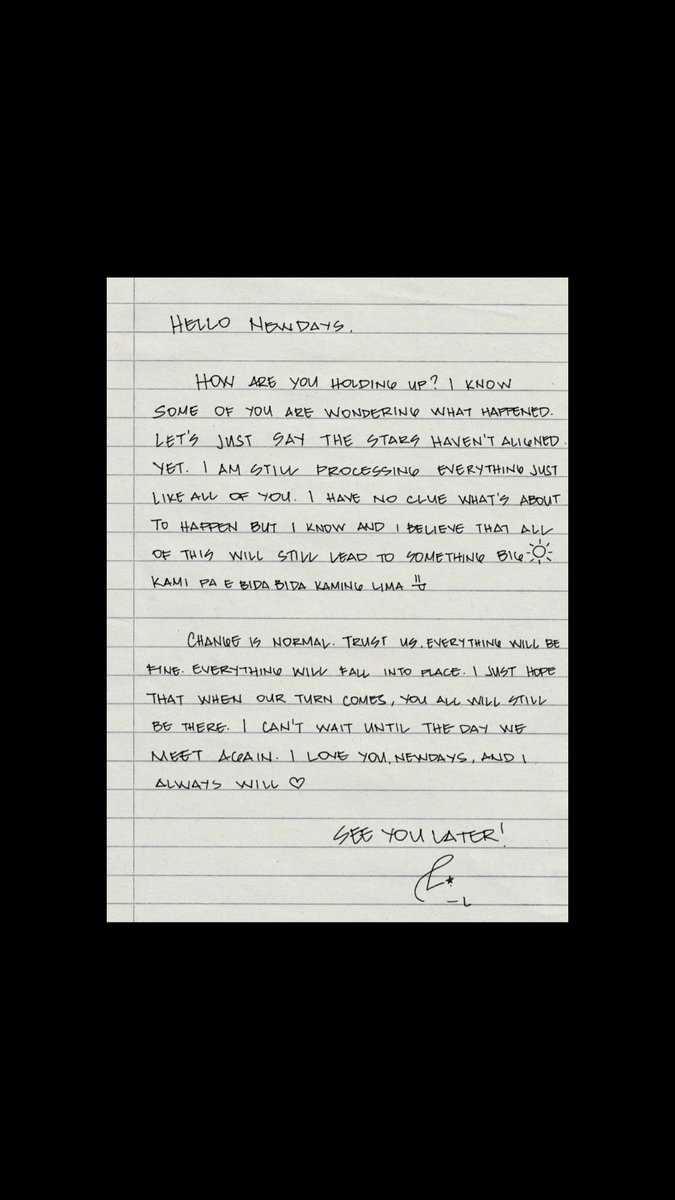 HELLO NEWDAYS.
HOW ARE YOU HOLDING UP? I KNOW
SOME OF YOU ARE WONDERING WHAT HAPPENED.
LET'S JUST SAY THE STARS HAVEN'T ALIGNED
YET. I AM STILL PROCESSING EVERYTHING JUST
LIKE ALL OF YOU. I HAVE NO CLUE WHAT'S ABOUT
TO HAPPEN BUT I KNOW AND I BELIEVE THAT ALL
OF THIS WILL STILL LEAD TO SOMETHING BIG
KAMI PA E BIDA BIDA KAMING LIMA
CHANGE IS NORMAL. TRUST US, EVERYTHING WILL BE
FINE. EVERYTHING WILL FALL INTO PLACE. I JUST HOPE
THAT WHEN OUR TURN COMES, YOU ALL WILL STILL
BE THERE. I CAN'T WAIT UNTIL THE DAY WE
MEET AGAIN. I LOVE YOU, NEWDAYS, AND I
ALWAYS WILL ♡
SEE YOU LATER!
-L